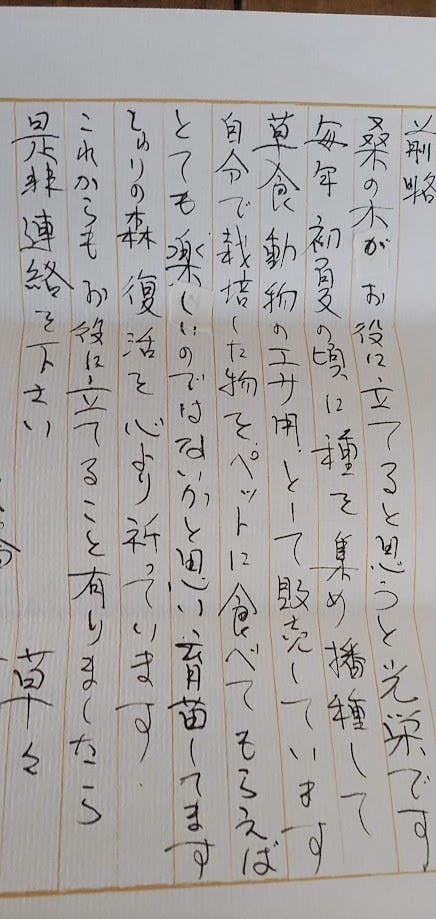 前略
桑の木がお役に立てると思うと光栄です
毎年初夏の頃に種を集め播種して
草食動物のエサ用として販売しています
自分で栽培した物をペットに食べてもらえば
とても楽しいのではないかと思い育苗してます
の森復活を心より祈っています.
これからもお役に立てること有りましたら
是非連絡を下さい
草々